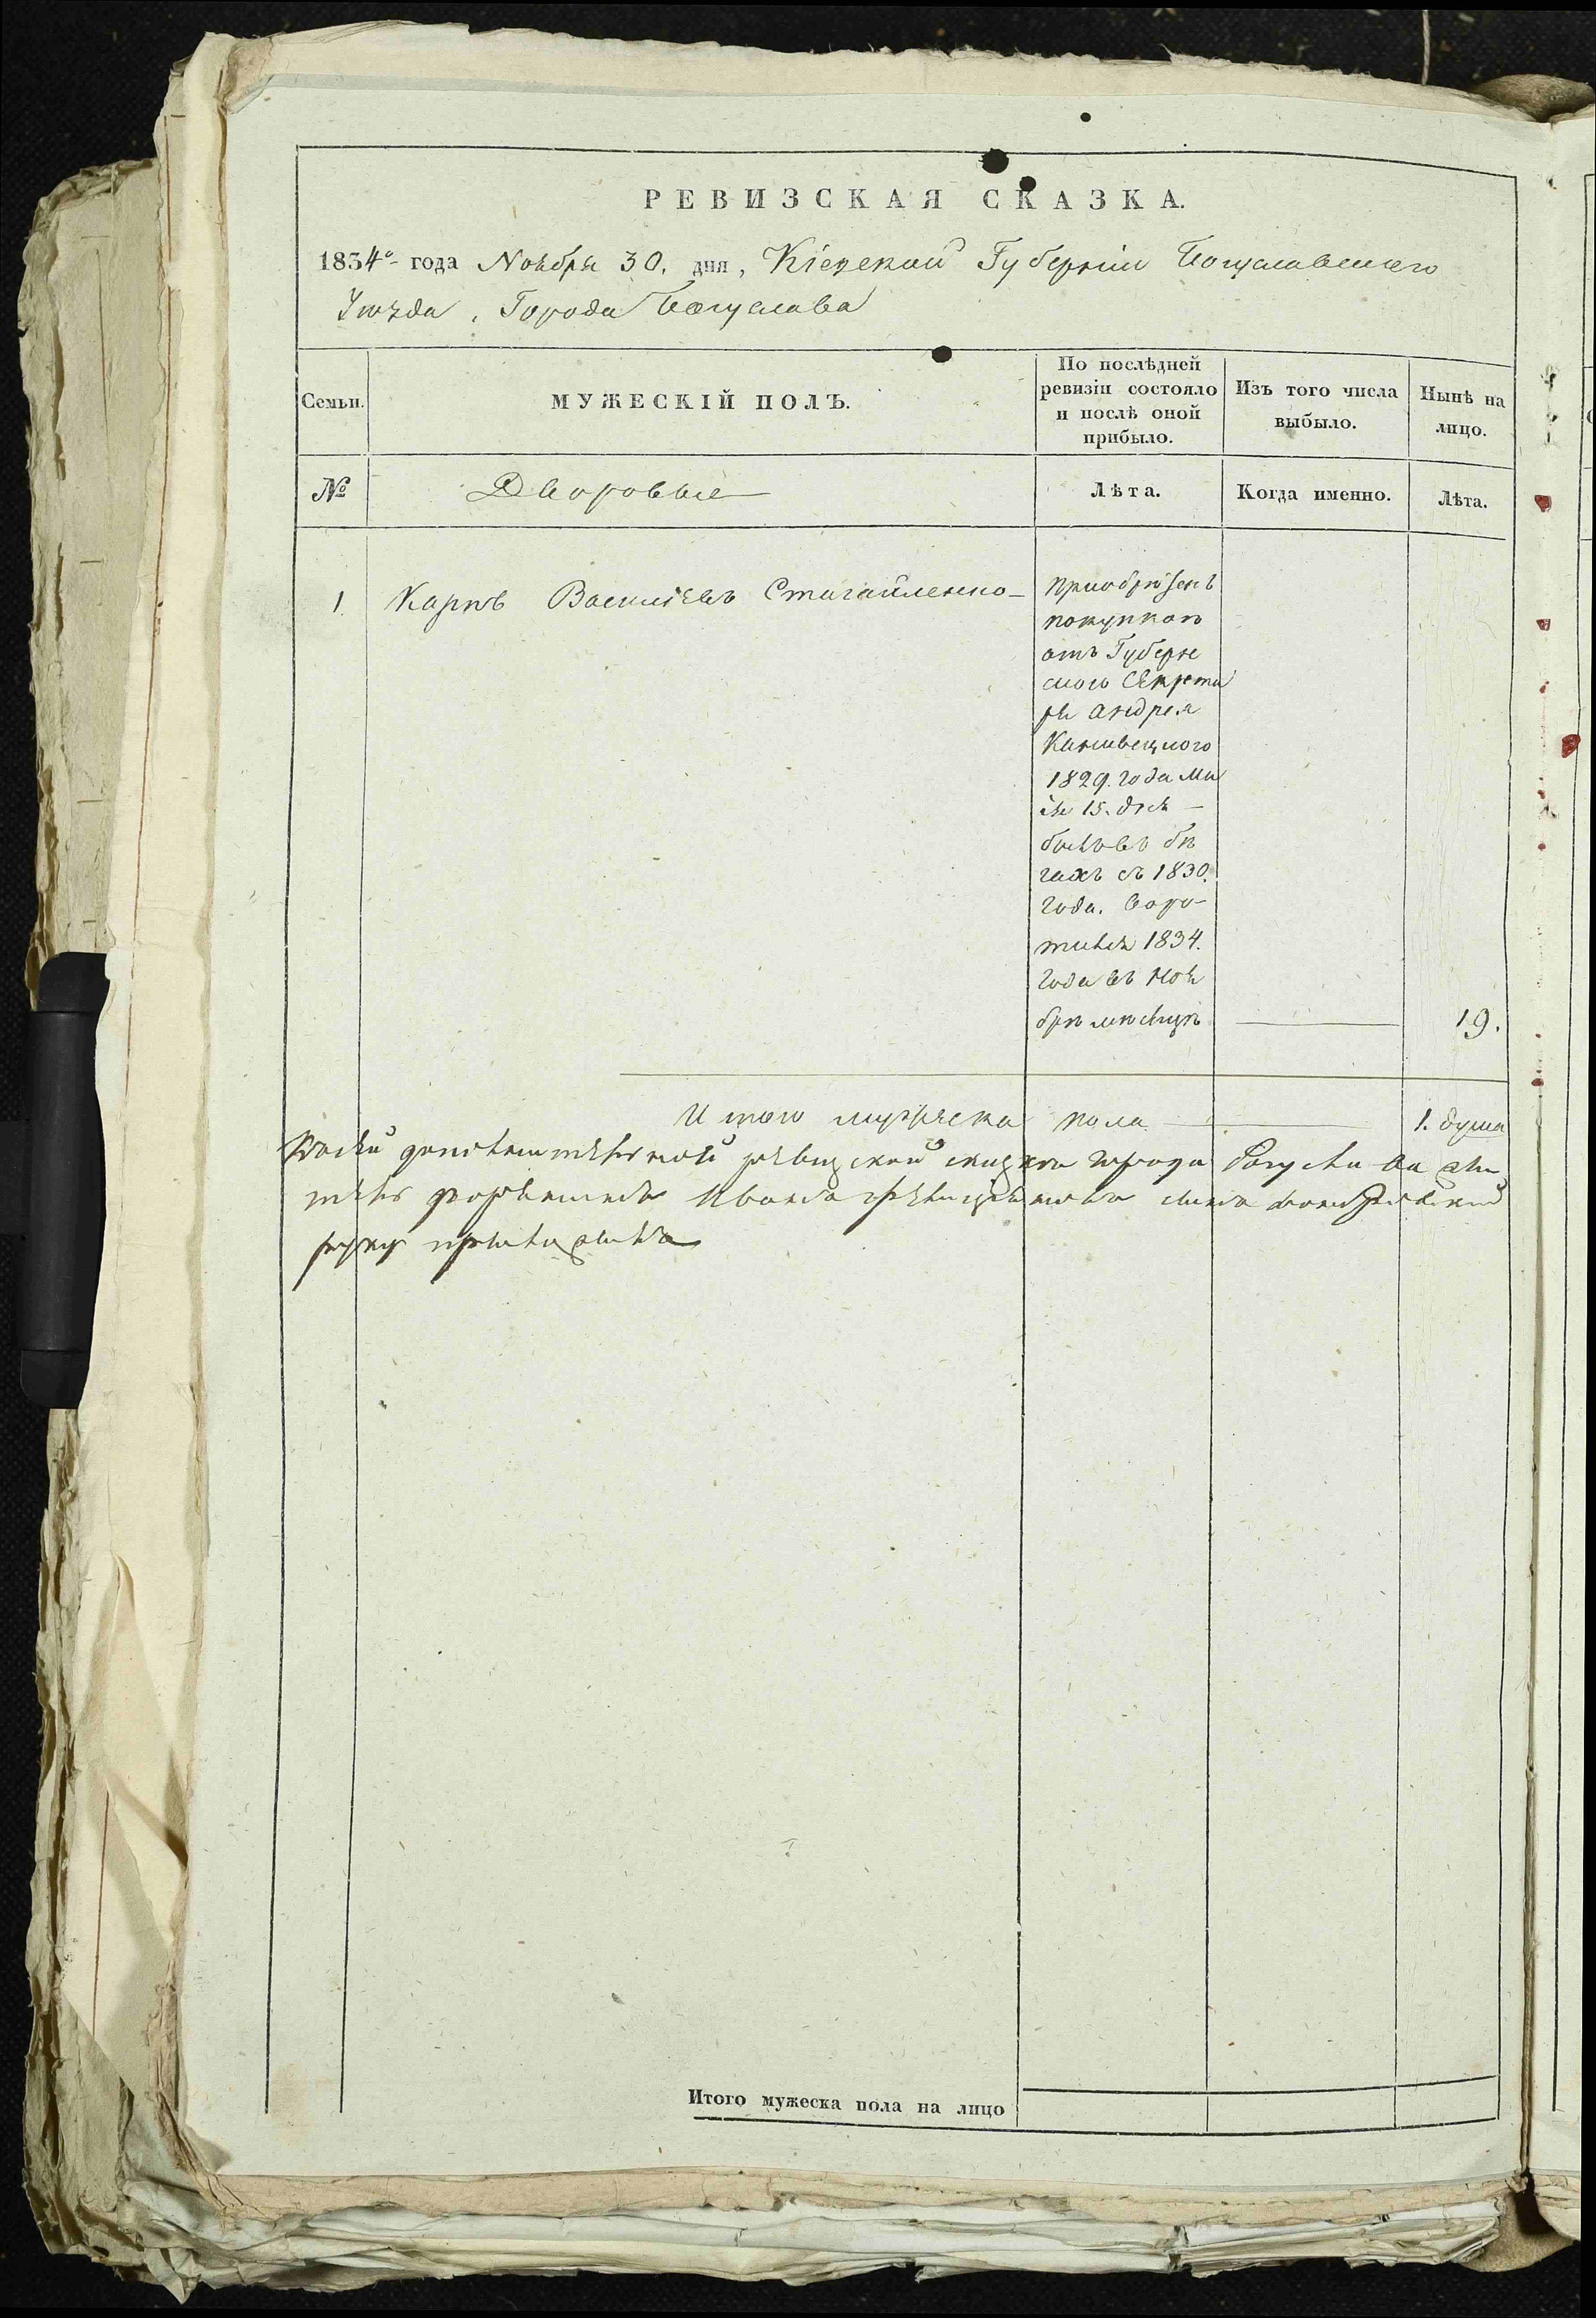 РЕВИЗСКАЯ СКАЗКА.
1834го года Ноября 30. дня, Кіевской Губерніи Богуславского
Уѣзда, Города Богуслава
Семьи.
МУЖЕСКІЙ ПОЛЪ.
По послѣдней
ревизіи состояло
и послѣ оной
прибыло.
Изъ того числа
выбыло.
Нынѣ на
лицо.
№
Дворовые
Лѣта.
Когда именно.
Лѣта.
1 Карпъ Васильевъ
приобрѣтенъ
покупкою
отъ Губерн
ского Секрета
ря Андрея
1829. года Ма
ія 15. дня —
былъ въ бѣ
гахъ съ 1830.
года. Воро-
тился 1834.
года въ Ноя
брѣ месяцѣ — 19.
Итого мужеска пола — 1. душа
ревизской города Богуслава
Ивана сына
руку приложилъ
Итого мужеска пола на лицо